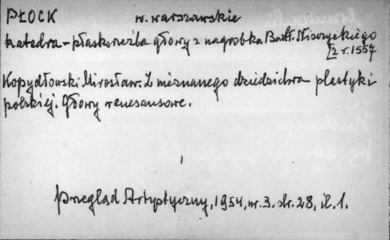 PŁOCK w. warszawskie
katedra - płaskorzeźba głowy z nagrobka Bartł. Nisorzyckiego
[z r. 1557
Kopydłowski Mirosław. Z nieznanego dziedzictwa plastyki
polskiej. Głowy renesansowe.
Przegląd Artystyczny, 1954, nr. 3. str. 28, il. 1.